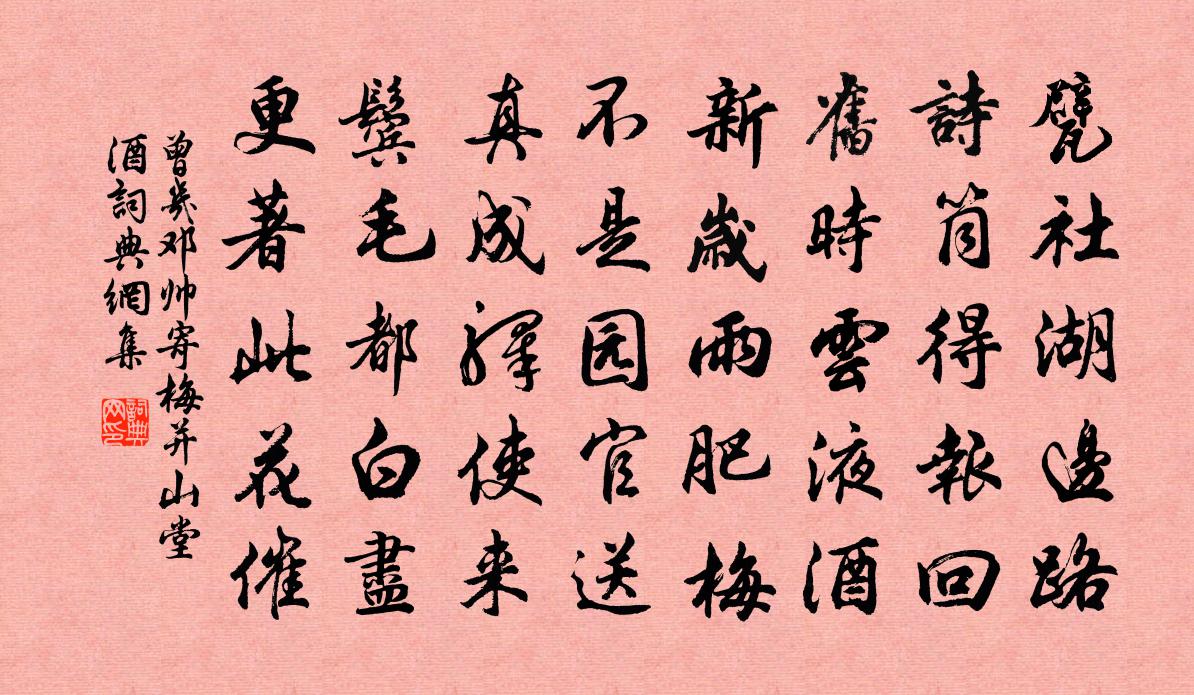 甓社湖邊路
詩筒得報回
舊時雲液酒
新歲雨肥梅
不是园官送
真成驛使来
鬓毛都白盡
更著此花催
曾幾邓帅寄梅并山堂
酒詞典網集
詞典
网印